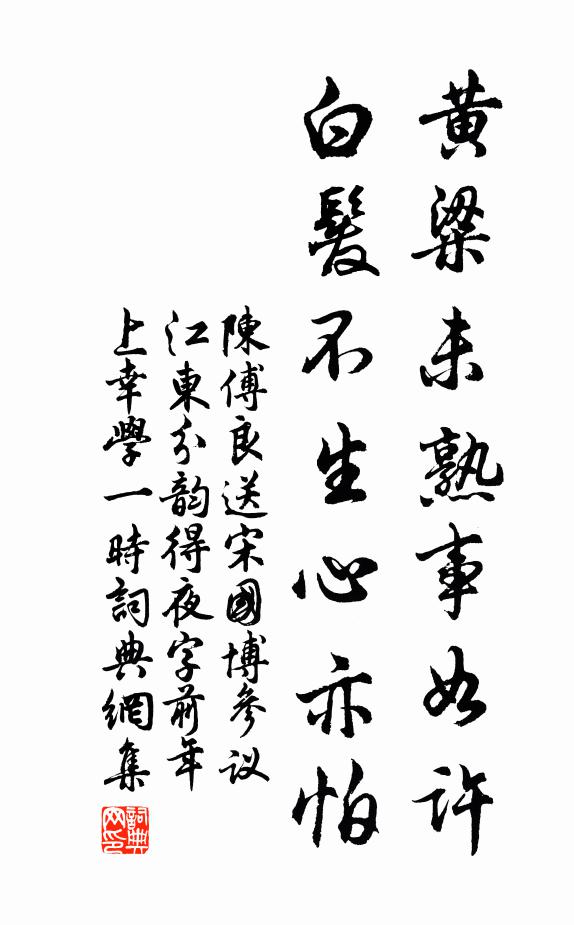 黃粱未熟事如許
白髮不生心亦怕
陳傅良送宋國博參议
江東分韵得夜字前年
上幸學一時詞典網集
詞典网印